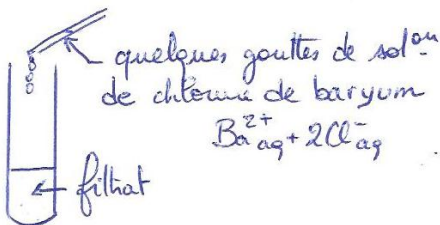 quelques gouttes de sol°ⁿ
de chlorure de baryum
Ba²⁺aq + 2Cl⁻aq
filtrat